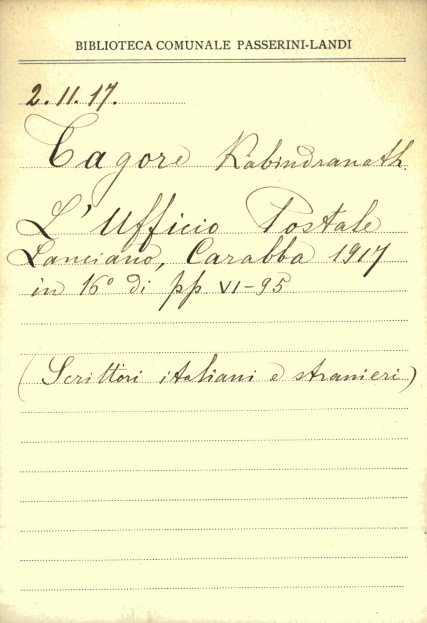 BIBLIOTECA COMUNALE PASSERINI-LANDI
2.11.17.
Tagore Rabindranath
L'Ufficio Postale
Lanciano, Carabba 1917
in 16° di pp VI-95
(Scrittori italiani e stranieri)